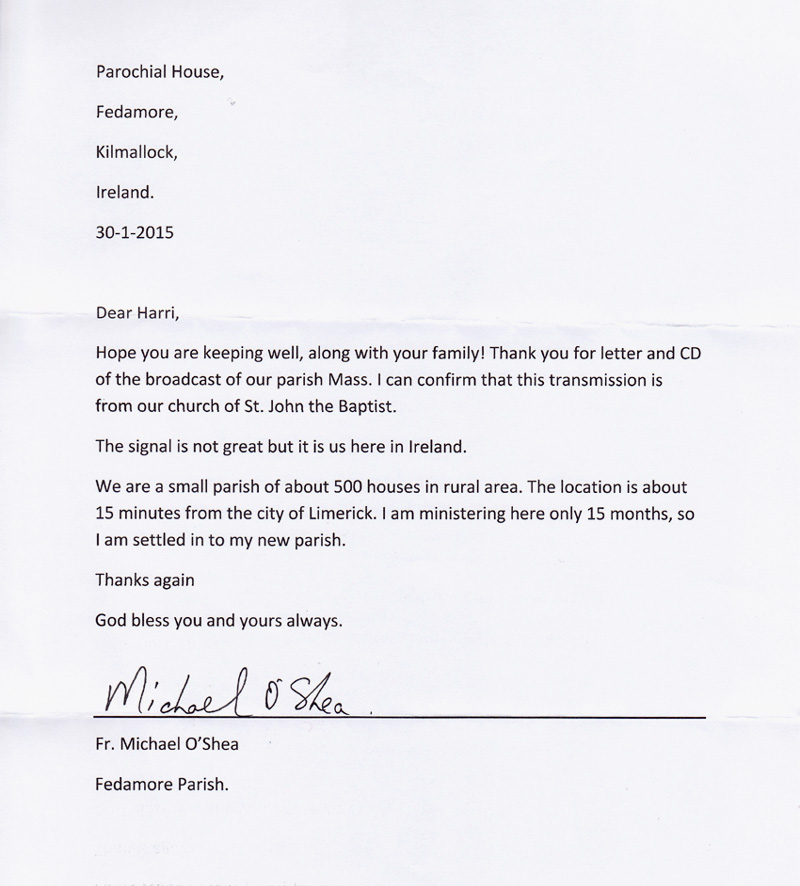 Parochial House,
Fedamore,
Kilmallock,
Ireland.
30-1-2015
Dear Harri,
Hope you are keeping well, along with your family! Thank you for letter and CD
of the broadcast of our parish Mass. I can confirm that this transmission is
from our church of St. John the Baptist.
The signal is not great but it is us here in Ireland.
We are a small parish of about 500 houses in rural area. The location is about
15 minutes from the city of Limerick. I am ministering here only 15 months, so
I am settled in to my new parish.
Thanks again
God bless you and yours always.
Michael O'Shea.
Fr. Michael O'Shea
Fedamore Parish.